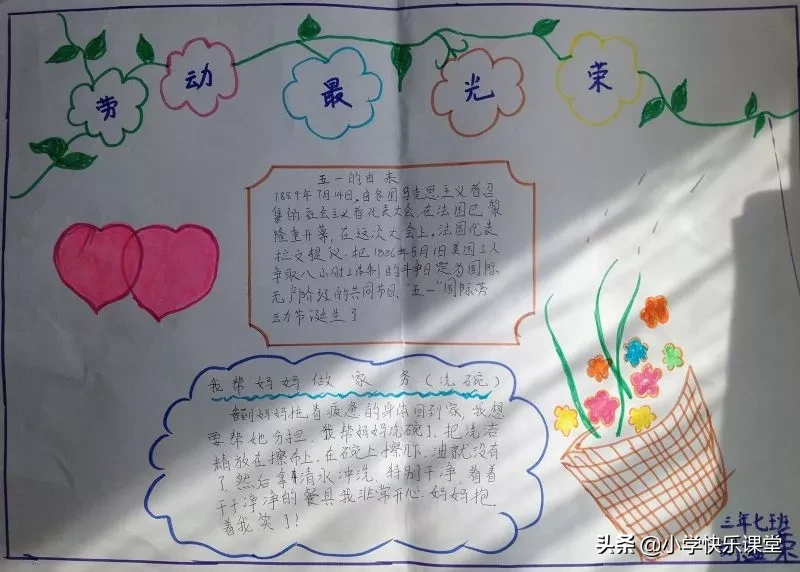 劳动最光荣
五一的由来
1889年7月14日,由各国马克思主义者召
集的社会主义者代表大会,在法国巴黎
隆重开幕,在这次大会上,法国代表
拉文提议:把1886年5月1日美国工人
争取八小时工作制的斗争日定为国际
无产阶级的共同节日,"五一"国际劳
动节诞生了
我帮妈妈做家务(洗碗)
看到妈妈拖着疲惫的身体回到家,我想
要帮她分担,我帮妈妈洗碗了,把洗洁
精放在擦布上,在碗上擦下,油就没有
了,然后拿清水冲洗,特别干净,看着
干干净净的餐具我非常开心,妈妈抱
着我笑了!
三年七班
荣
头条 @小学快乐课堂